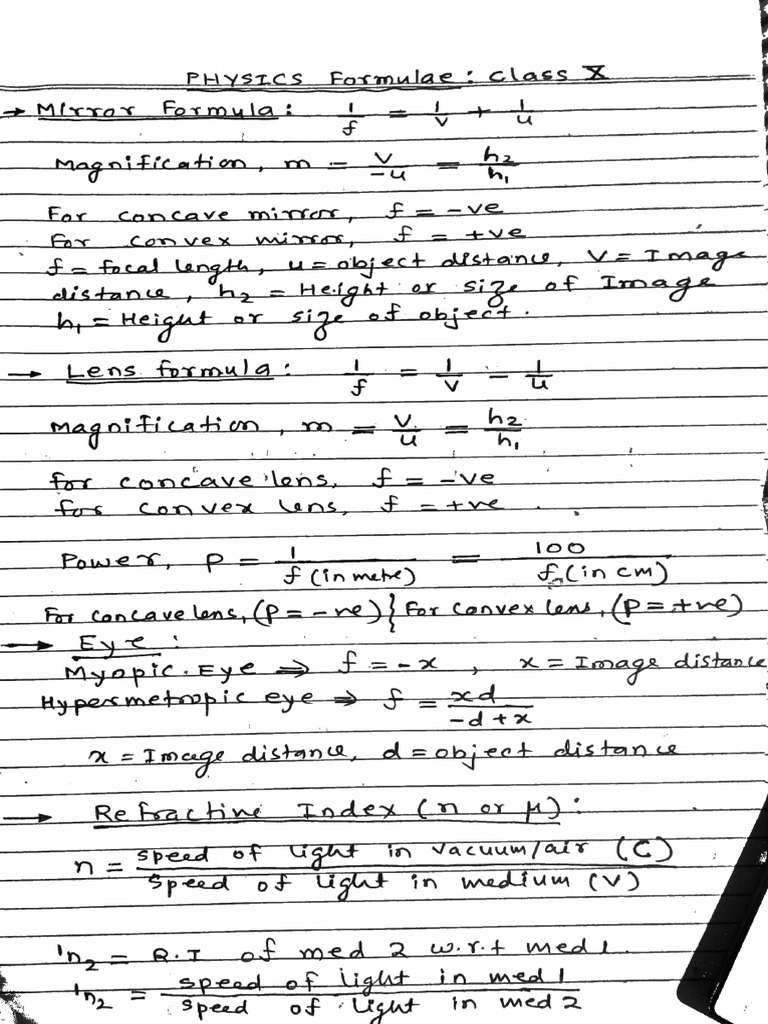 PHYSICS Formulae: Class X
→ Mirror Formula: 1/f = 1/v + 1/u
Magnification, m = v/-u = h2/h1
For concave mirror, f = -ve
For convex mirror, f = +ve
f = focal length, u = object distance, V = Image
distance, h2 = Height or size of Image
h1 = Height or size of object.
→ Lens formula: 1/f = 1/v - 1/u
Magnification, m = v/u = h2/h1
For concave lens, f = -ve
For convex lens, f = +ve
Power, P = 1/f (in metre) = 100/f (in cm)
For concave lens, (P = -ve) } For convex lens, (P = +ve)
→ Eye:
Myopic Eye ⇒ f = -x , x = Image distance
Hypermetropic eye ⇒ f = xd/-d+x
x = Image distance, d = object distance
→ Refractive Index (n or μ):
n = speed of light in vacuum/air (C)/speed of light in medium (V)
¹n2 = R.I of med 2 w.r.t med 1
¹n2 = speed of light in med 1/speed of light in med 2